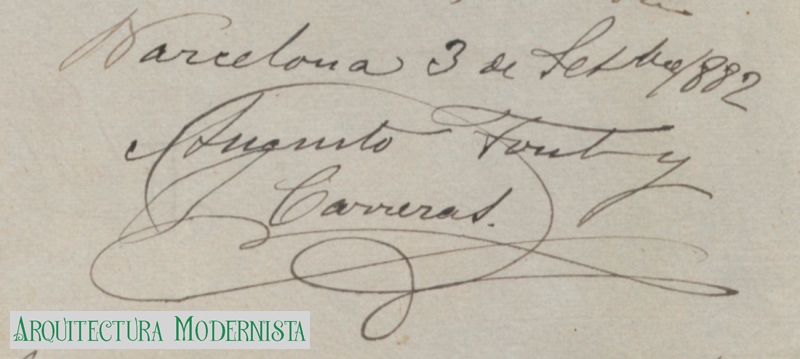 Barcelona 3 de Setbre 1882
Augusto Font y
Carreras.
ARQUITECTURA MODERNISTA